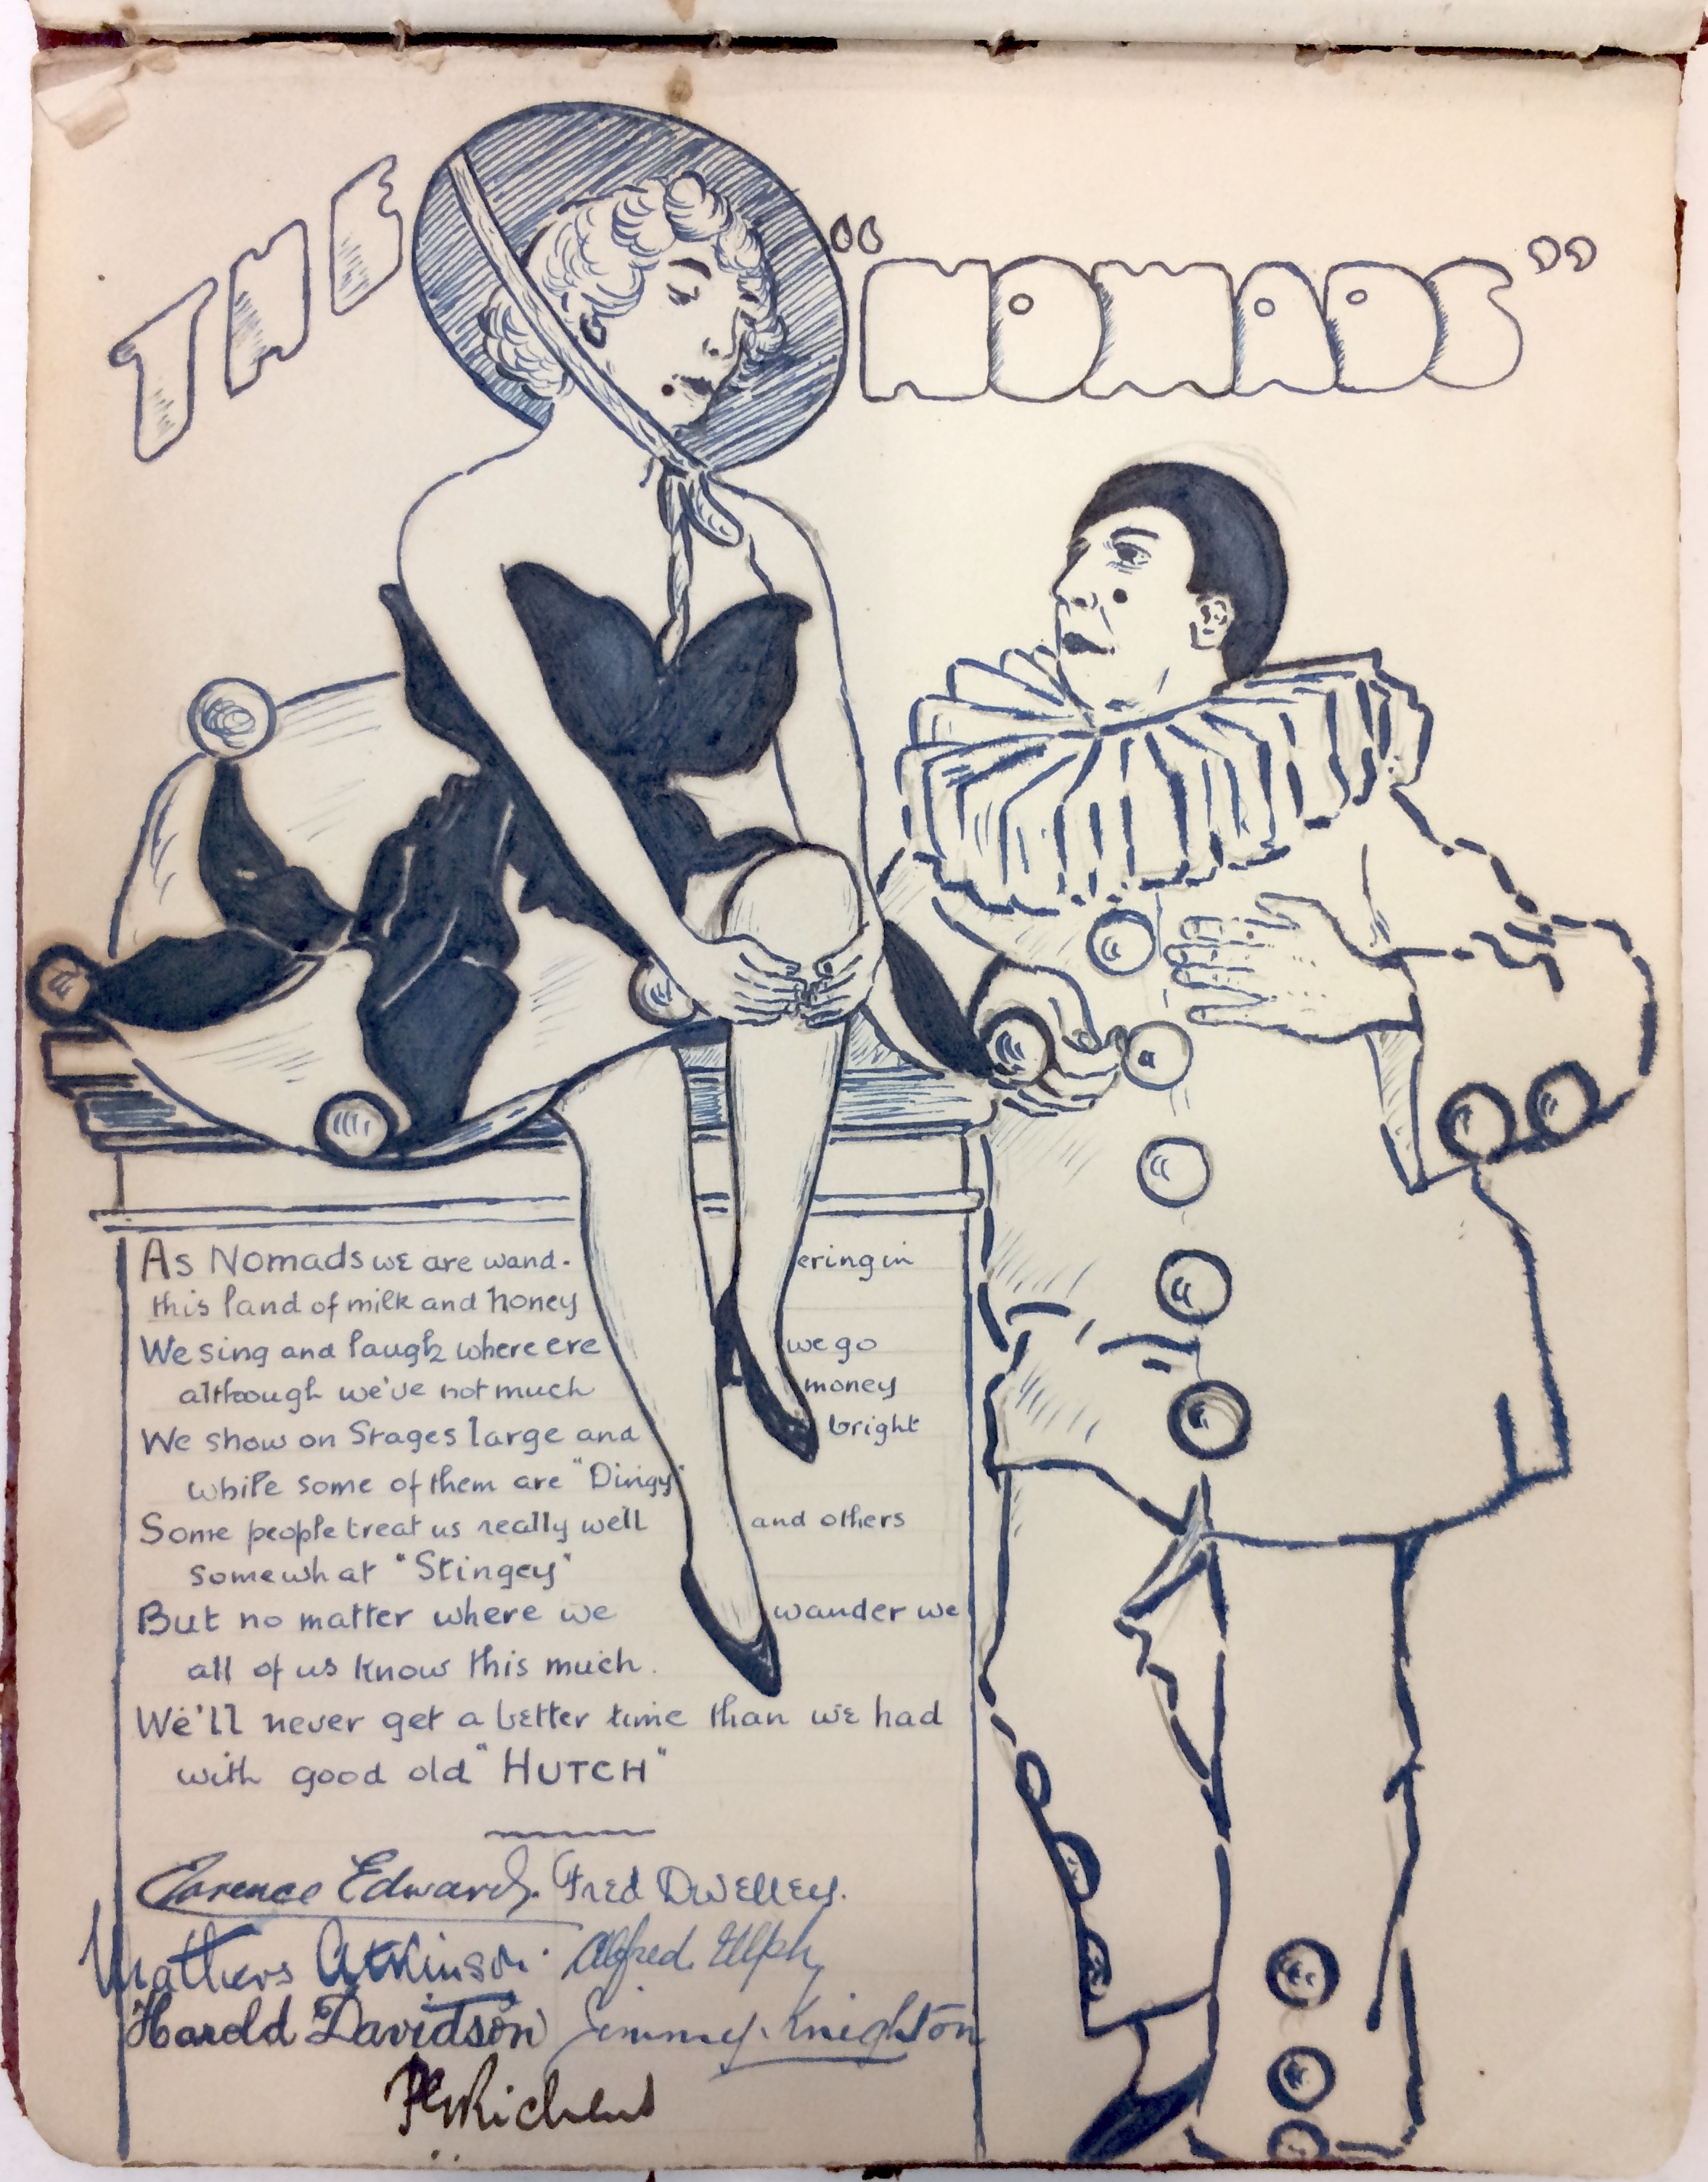 THE "NOMADS"
As Nomads we are wand- ering in
this land of milk and honey
We sing and laugh where ere we go
although we've not much money
We show on Stages large and bright
while some of them are "Dingy"
Some people treat us really well and others
somewhat "Stingey"
But no matter where we wander we
all of us know this much.
We'll never get a better time than we had
with good old "HUTCH"
Clarence Edwards. Fred Dwelley.
Mathers Atkinson. Alfred Ulph
Harold Davidson Jimmy Knighton